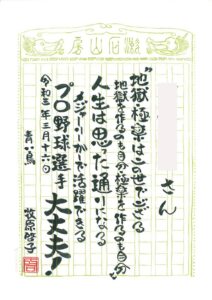 漱石山房
さん
“地獄極楽はこの世でござる
地獄を作るのも自分 極楽を作るのも自分”
人生は思った通りになる
メジャーリーガーで活躍できる
プロ野球選手 大丈夫!
令和三年三月十六日
青い鳥 牧原